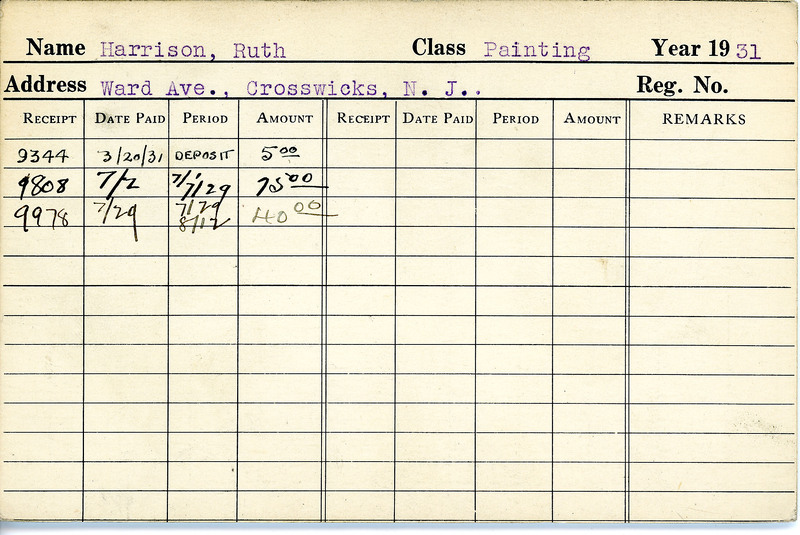 Name Harrison, Ruth Class Painting Year 19 31
Address Ward Ave., Crosswicks, N. J.. Reg. No.
RECEIPT DATE PAID PERIOD AMOUNT RECEIPT DATE PAID PERIOD AMOUNT REMARKS
9344 3/20/31 DEPOSIT 5 00
9808 7/2 7/1 7/29 75 00
9978 7/29 7/29 8/12 40 00